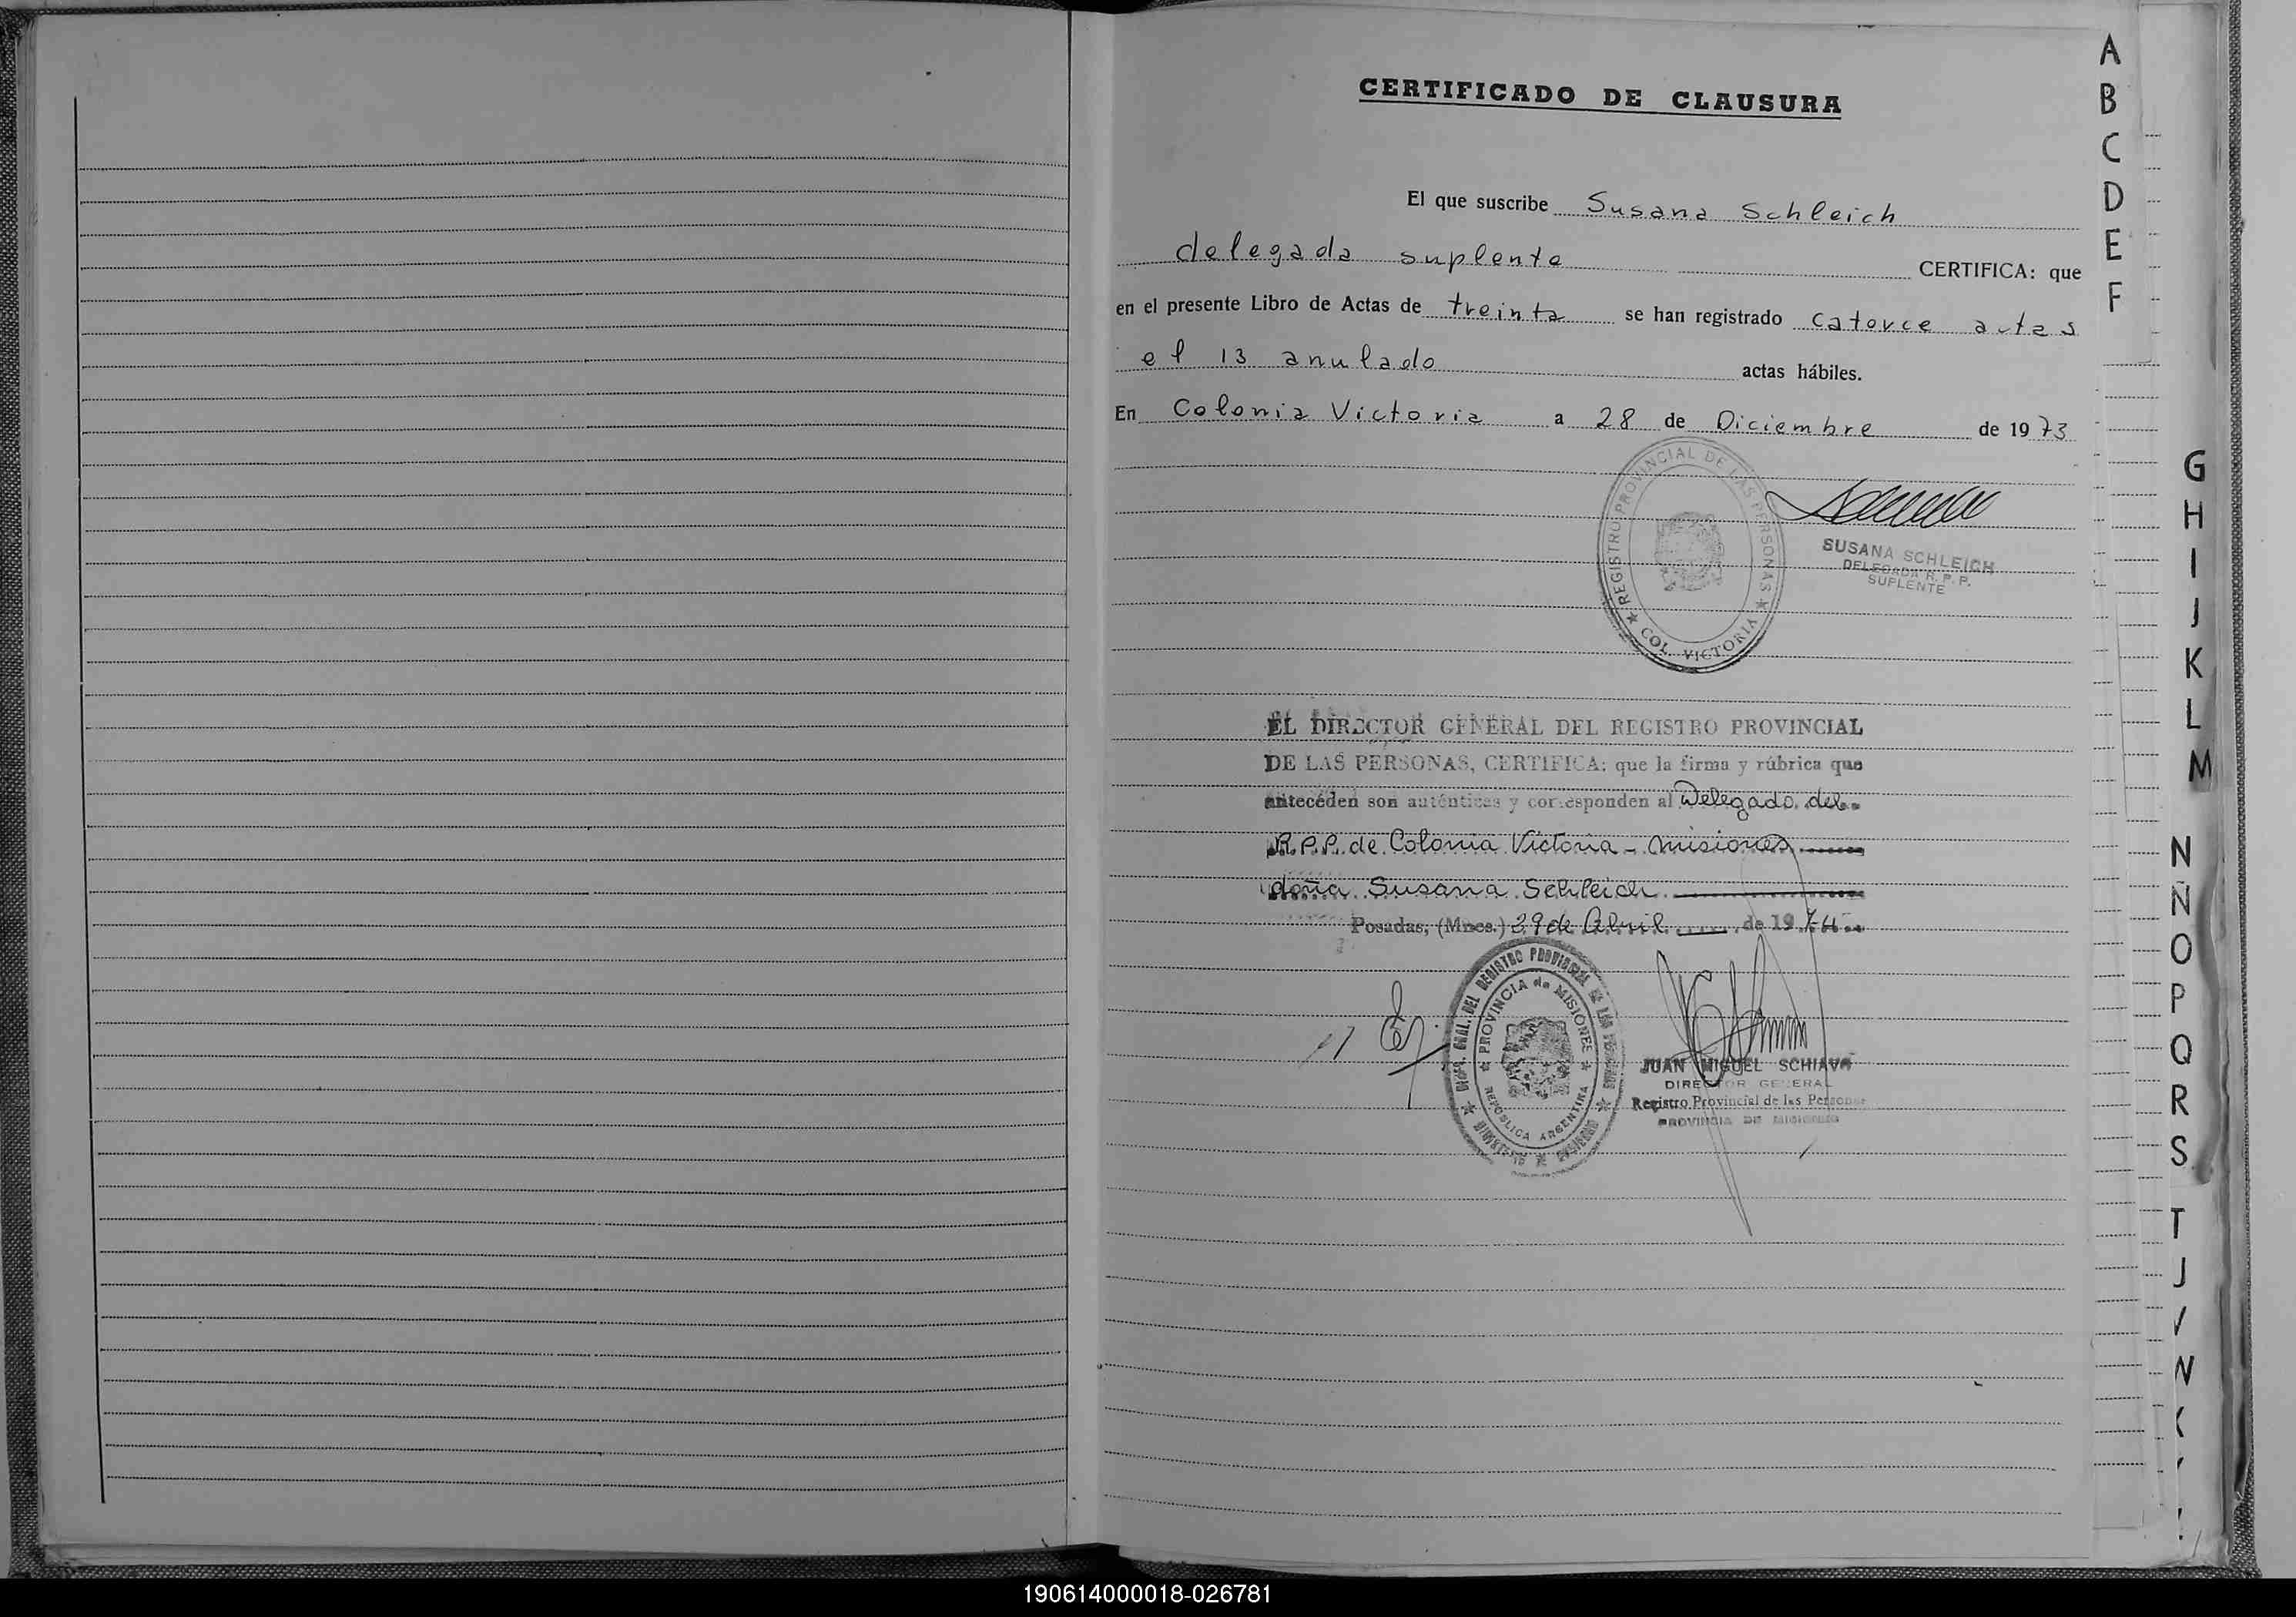 CERTIFICADO DE CLAUSURA
El que suscribe Susana Schleich
delegada suplente CERTIFICA: que
en el presente Libro de Actas de treinta se han registrado catorce actas
el 13 anulado actas hábiles.
En Colonia Victoria a 28 de Diciembre de 1973
REGISTRO PROVINCIAL DE LAS PERSONAS
COL. VICTORIA
SUSANA SCHLEICH
DELEGADA R. P. P.
SUPLENTE
EL DIRECTOR GENERAL DEL REGISTRO PROVINCIAL
DE LAS PERSONAS, CERTIFICA: que la firma y rúbrica que
anteceden son auténticas y corresponden al Delegado del
R.P.P. de Colonia Victoria - Misiones
doña Susana Schleich
Posadas, (Mnes.) 29 de Abril de 1974
DIREC. GRAL. DEL REGISTRO PROVINCIAL DE LAS PERSONAS
PROVINCIA de MISIONES
REPUBLICA ARGENTINA
JUAN MIGUEL SCHIAVO
DIRECTOR GENERAL
Registro Provincial de las Personas
PROVINCIA DE MISIONES
A
B
C
D
E
F
G
H
I
J
K
L
M
N
Ñ
O
P
Q
R
S
T
190614000018-026781